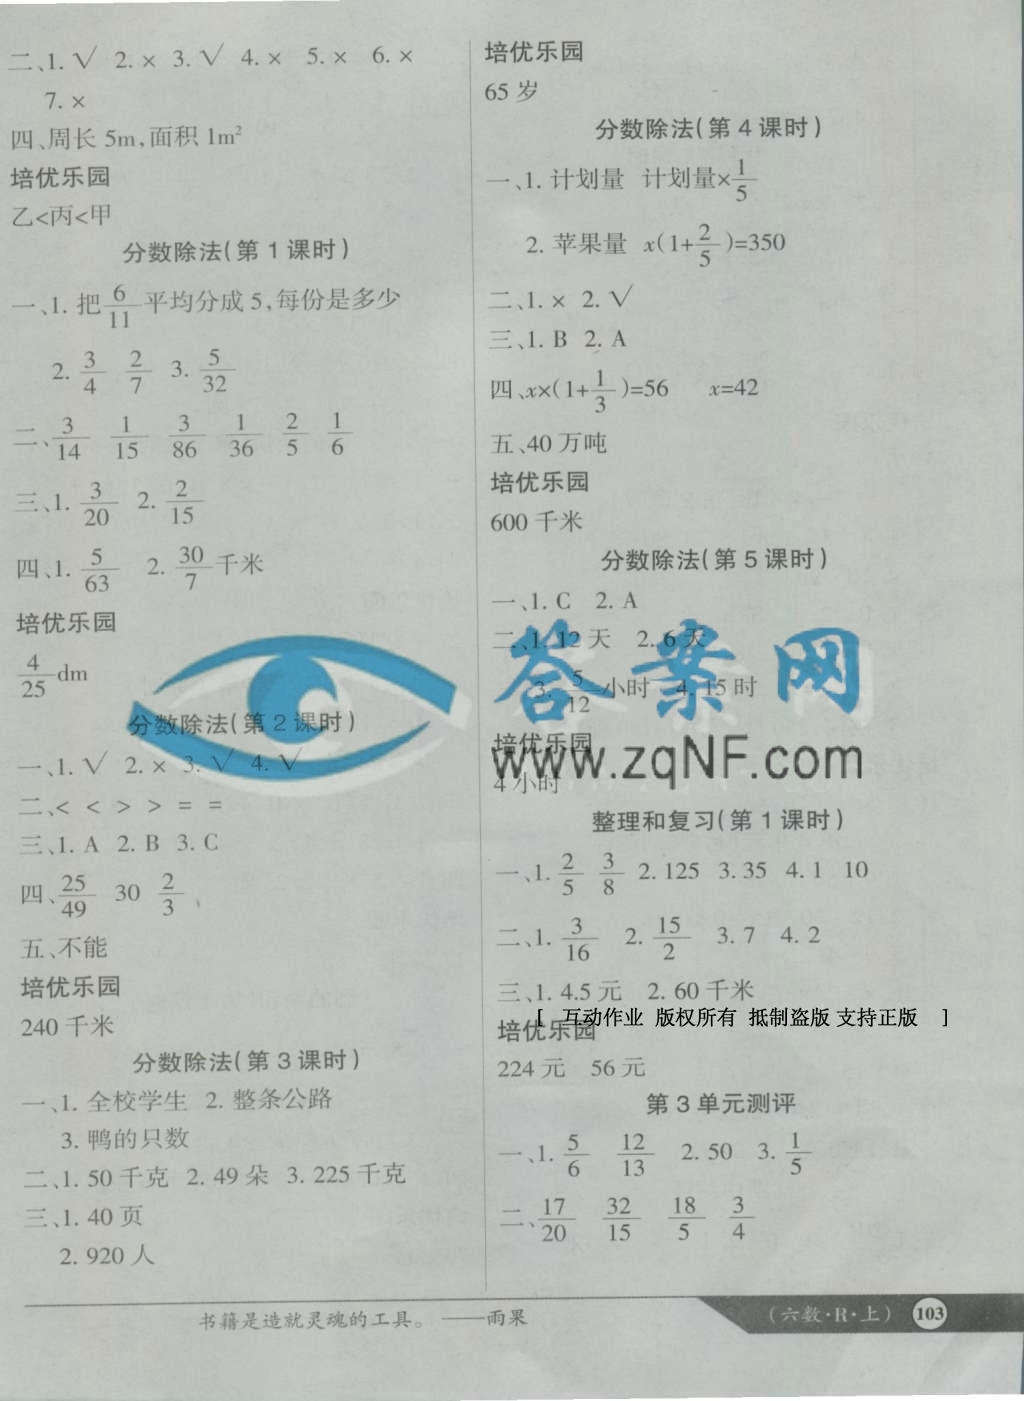 二、1. √ 2. × 3. √ 4. × 5. × 6. ×
7. ×
四、周长 5m,面积 1m²
培优乐园
乙<丙<甲
分数除法(第 1 课时)
一、1. 把 6/11 平均分成 5,每份是多少
2. 3/4 2/7 3. 5/32
二、3/14 1/15 3/86 1/36 2/5 1/6
三、1. 3/20 2. 2/15
四、1. 5/63 2. 30/7 千米
培优乐园
4/25 dm
分数除法(第 2 课时)
一、1. √ 2. × 3. √ 4. √
二、< < > > = =
三、1. A 2. B 3. C
四、25/49 30 2/3
五、不能
培优乐园
240 千米
分数除法(第 3 课时)
一、1. 全校学生 2. 整条公路
3. 鸭的只数
二、1. 50 千克 2. 49 朵 3. 225 千克
三、1. 40 页
2. 920 人
培优乐园
65 岁
分数除法(第 4 课时)
一、1. 计划量 计划量×1/5
2. 苹果量 x(1+2/5)=350
二、1. × 2. √
三、1. B 2. A
四、x×(1+1/3)=56 x=42
五、40 万吨
培优乐园
600 千米
分数除法(第 5 课时)
一、1. C 2. A
二、1. 12 天 2. 6 天
3. 5/12 小时 4. 15 时
培优乐园
4 小时
整理和复习(第 1 课时)
一、1. 2/5 3/8 2. 125 3. 35 4. 1 10
二、1. 3/16 2. 15/2 3. 7 4. 2
三、1. 4.5 元 2. 60 千米
培优乐园
224 元 56 元
第 3 单元测评
一、1. 5/6 12/13 2. 50 3. 1/5
二、17/20 32/15 18/5 3/4
答案网
www.zqNF.com
[ 互动作业 版权所有 抵制盗版 支持正版 ]
书籍是造就灵魂的工具。 ——雨果
(六数·R·上) 103